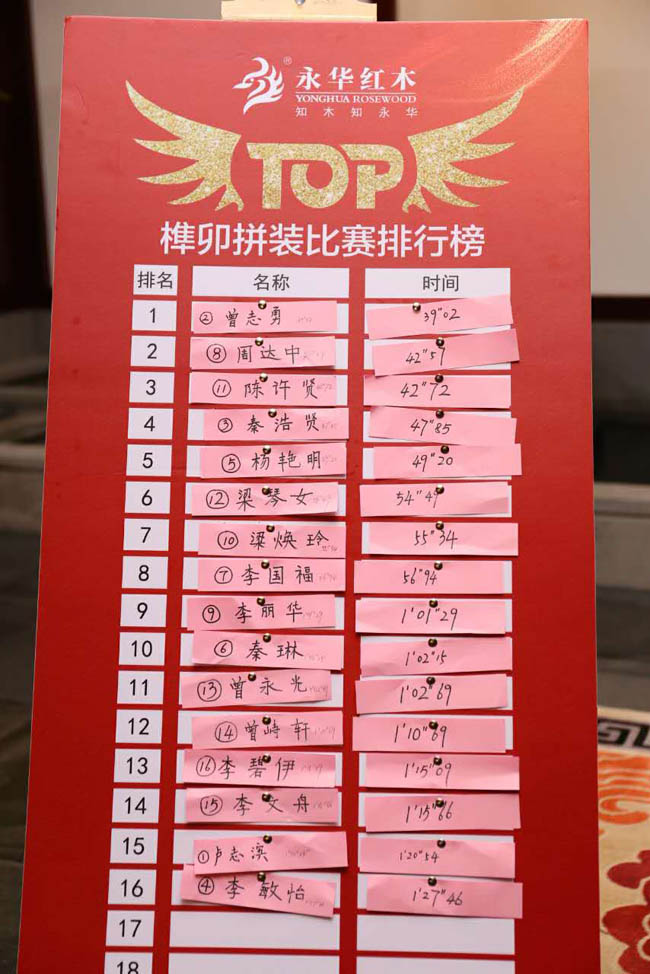 ®
永华红木
YONGHUA ROSEWOOD
知木知永华
TOP
榫卯拼装比赛排行榜
排名 名称 时间
1 ② 曾志勇 39"02
2 ⑧ 周达中 42"57
3 ⑪ 陈许贤 42"72
4 ③ 秦浩贤 47"85
5 ⑤ 杨艳明 49"20
6 ⑫ 梁琴女 54"49
7 ⑩ 梁焕玲 55"34
8 ⑦ 李国福 56"94
9 ⑨ 李丽华 1'01"29
10 ⑥ 秦琳 1'02"15
11 ⑬ 曾永光 1'02"69
12 ⑭ 曾峙轩 1'10"69
13 ⑯ 李碧伊 1'15"09
14 ⑮ 李文舟 1'15"66
15 ① 卢志滨 1'20"54
16 ④ 李敏怡 1'27"46
17
18